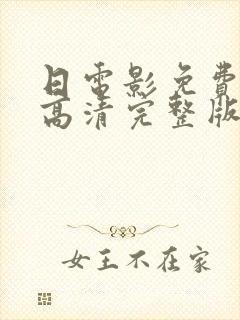 日电影免费
高清完整版
女王不在家